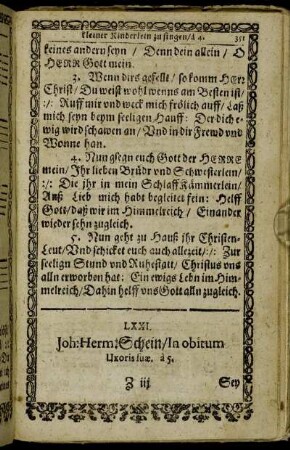 kleiner Kinderlein zu singen/ à 4. 351
keines andern seyn / Denn dein allein / O
HERR Gott mein.
3. Wenn dirs gefellt / so komm HEr:
Christ/ Du weist wohl wenns am Besten ist/
:/: Ruff mir und weck mich frölich auff/ Laß
mich seyn beym seeligen Hauff: Der dich e-
wig wird schawen an/ Vnd in dir Frewd vnd
Wonne han.
4. Nun gsegn euch Gott der HERRE
mein/ Ihr lieben Brüdr vnd Schwesterlein/
:/: Die jhr in mein Schlaff Kämmerlein/
Auß Lieb mich habt begleitet fein: Helff
Gott/ daß wir im Himmelreich/ Einander
wieder sehn zugleich.
5. Nun geht zu Hauß jhr Christen-
Leut/ Vnd schicket euch auch allezeit/ :/: Zur
seelign Stund vnd Ruhestatt/ Christus vns
alln erworben hat: Ein ewigs Lebn im Him-
melreich/ Dahin helff vns Gott alln zugleich.
LXXI.
Joh: Herm: Schein/ In obitum
Uxoris suæ. à 5.
Z iij Sey